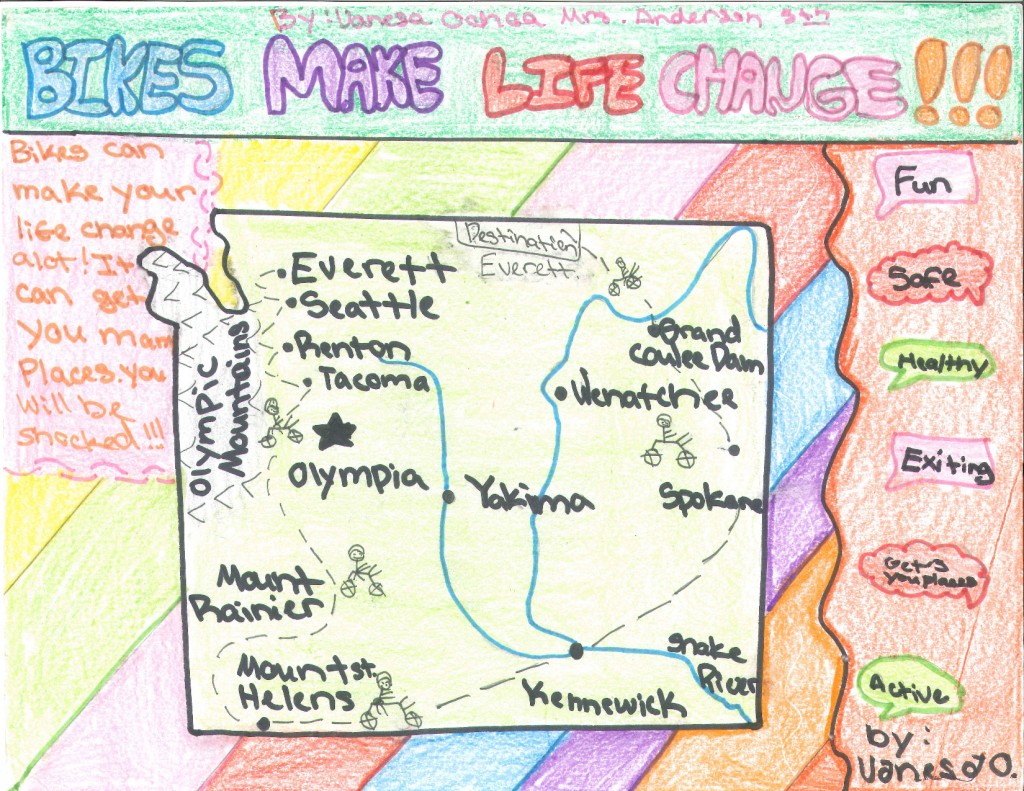 By: Vanesa Ochoa Mrs. Anderson
BIKES MAKE LIFE CHANGE!!!
Bikes can
make your
life change
alot! It
can get
you many
Places. you
will be
shocked!!!
Destination
Everett.
Everett
Seattle
Renton
Tacoma
Olympia
Olympic
Mountains
Grand
Coulee Dam
Wenatchee
Yakima
Spokane
Mount
Rainier
Mount st.
Helens
Kennewick
Snake
River
Fun
Safe
Healthy
Exiting
Gets
you places
Active
by:
Vanesa O.